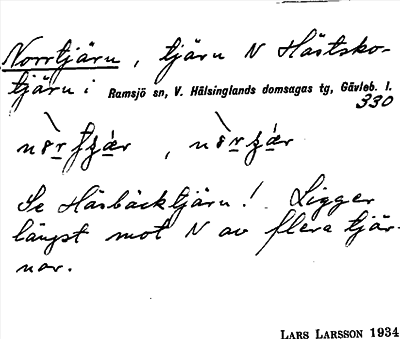 Norrtjärn, tjärn N Hästsko-
tjärn i Ramsjö sn, V. Hälsinglands domsagas tg, Gävleb. l.
330
Se Häsbäcktjärn! Ligger
längst mot N av flera tjär-
nar.
LARS LARSSON 1934